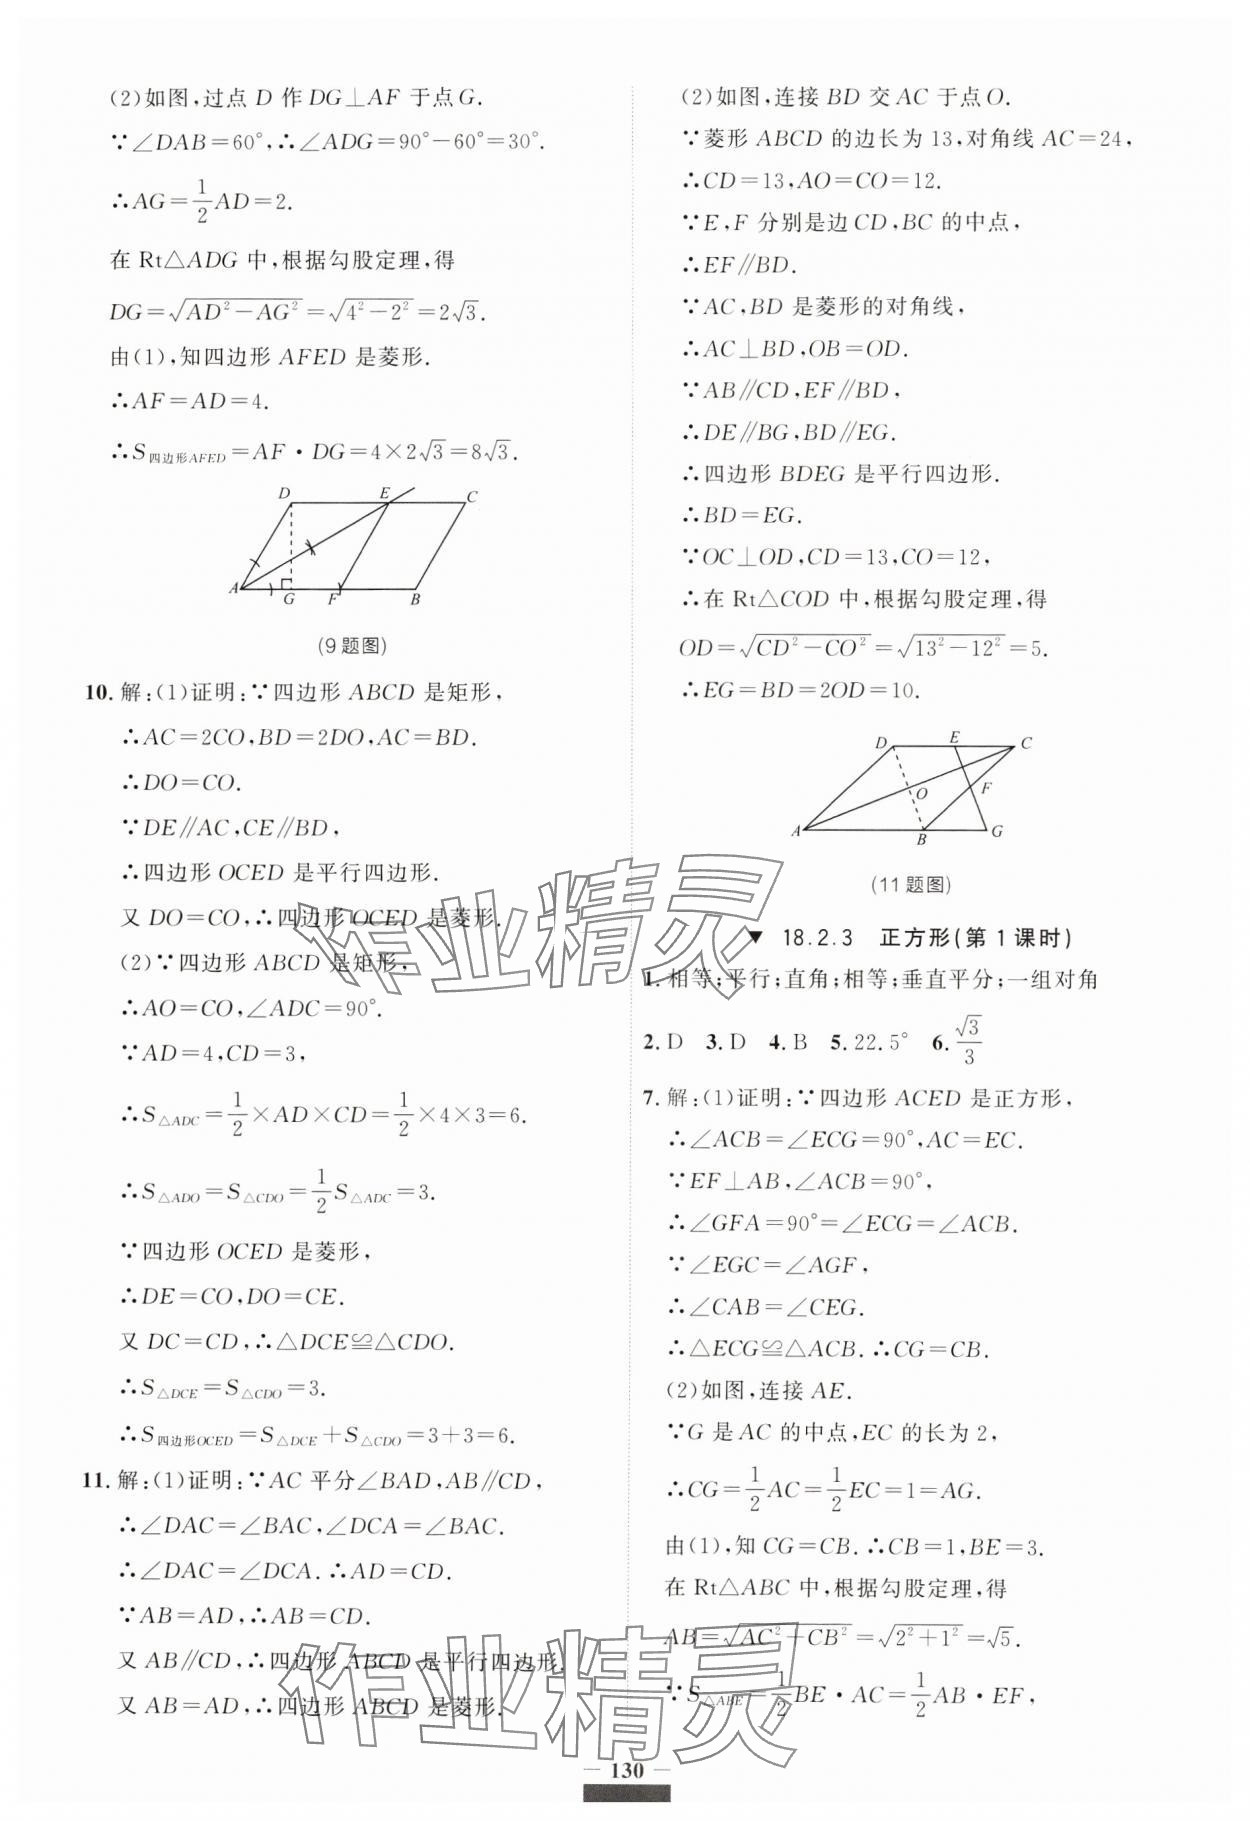 (2)如图,过点 D 作 DG⊥AF 于点 G.
∵∠DAB=60°,∴∠ADG=90°-60°=30°.
∴AG=1/2AD=2.
在 Rt△ADG 中,根据勾股定理,得
DG=√(AD²-AG²)=√(4²-2²)=2√3.
由(1),知四边形 AFED 是菱形.
∴AF=AD=4.
∴S四边形AFED=AF·DG=4×2√3=8√3.
D E C
A G F B
(9题图)
10. 解:(1)证明:∵四边形 ABCD 是矩形,
∴AC=2CO,BD=2DO,AC=BD.
∴DO=CO.
∵DE∥AC,CE∥BD,
∴四边形 OCED 是平行四边形.
又 DO=CO,∴四边形 OCED 是菱形.
(2)∵四边形 ABCD 是矩形,
∴AO=CO,∠ADC=90°.
∵AD=4,CD=3,
∴S△ADC=1/2×AD×CD=1/2×4×3=6.
∴S△ADO=S△CDO=1/2S△ADC=3.
∵四边形 OCED 是菱形,
∴DE=CO,DO=CE.
又 DC=CD,∴△DCE≌△CDO.
∴S△DCE=S△CDO=3.
∴S四边形OCED=S△DCE+S△CDO=3+3=6.
11. 解:(1)证明:∵AC 平分∠BAD,AB∥CD,
∴∠DAC=∠BAC,∠DCA=∠BAC.
∴∠DAC=∠DCA.∴AD=CD.
∵AB=AD,∴AB=CD.
又 AB∥CD,∴四边形 ABCD 是平行四边形.
又 AB=AD,∴四边形 ABCD 是菱形.
(2)如图,连接 BD 交 AC 于点 O.
∵菱形 ABCD 的边长为 13,对角线 AC=24,
∴CD=13,AO=CO=12.
∵E,F 分别是边 CD,BC 的中点,
∴EF∥BD.
∵AC,BD 是菱形的对角线,
∴AC⊥BD,OB=OD.
∵AB∥CD,EF∥BD,
∴DE∥BG,BD∥EG.
∴四边形 BDEG 是平行四边形.
∴BD=EG.
∵OC⊥OD,CD=13,CO=12,
∴在 Rt△COD 中,根据勾股定理,得
OD=√(CD²-CO²)=√(13²-12²)=5.
∴EG=BD=2OD=10.
D E C
O F
A B G
(11题图)
▼ 18.2.3 正方形(第1课时)
1. 相等;平行;直角;相等;垂直平分;一组对角
2. D 3. D 4. B 5. 22.5° 6. √3/3
7. 解:(1)证明:∵四边形 ACED 是正方形,
∴∠ACB=∠ECG=90°,AC=EC.
∵EF⊥AB,∠ACB=90°,
∴∠GFA=90°=∠ECG=∠ACB.
∵∠EGC=∠AGF,
∴∠CAB=∠CEG.
∴△ECG≌△ACB.∴CG=CB.
(2)如图,连接 AE.
∵G 是 AC 的中点,EC 的长为 2,
∴CG=1/2AC=1/2EC=1=AG.
由(1),知 CG=CB.∴CB=1,BE=3.
在 Rt△ABC 中,根据勾股定理,得
AB=√(AC²+CB²)=√(2²+1²)=√5.
∵S△ABE=1/2BE·AC=1/2AB·EF,
作业精灵
作业精灵
130